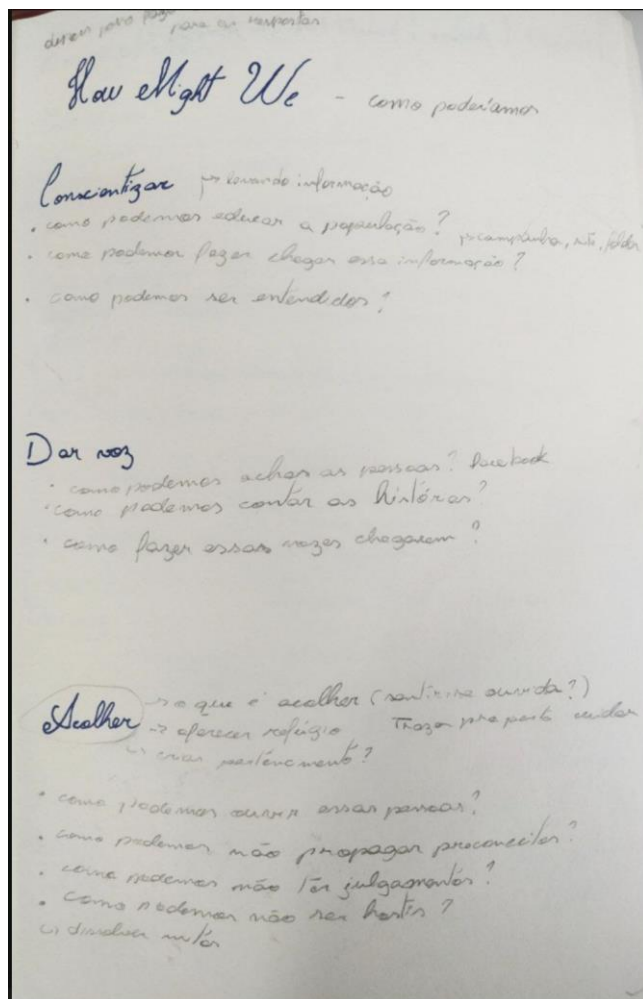 para as respostas
How Might We - como poderíamos
Conscientizar ↳ levando informação
• como podemos educar a população?
↳ campanha, site, folder
• como podemos fazer chegar essa informação?
• como podemos ser entendidos?
Dar voz
• como podemos achar as pessoas? Facebook
• como podemos contar as histórias?
• como fazer essas vozes chegarem?
→ o que é acolher (sentir-se ouvida?)
Acolher → oferecer refúgio Trazer pra perto cuidar
↳ criar pertencimento?
• como podemos ouvir essas pessoas?
• como podemos não propagar preconceitos?
• como podemos não ter julgamentos?
• como podemos não ser hostis?
↳ dissolver mitos